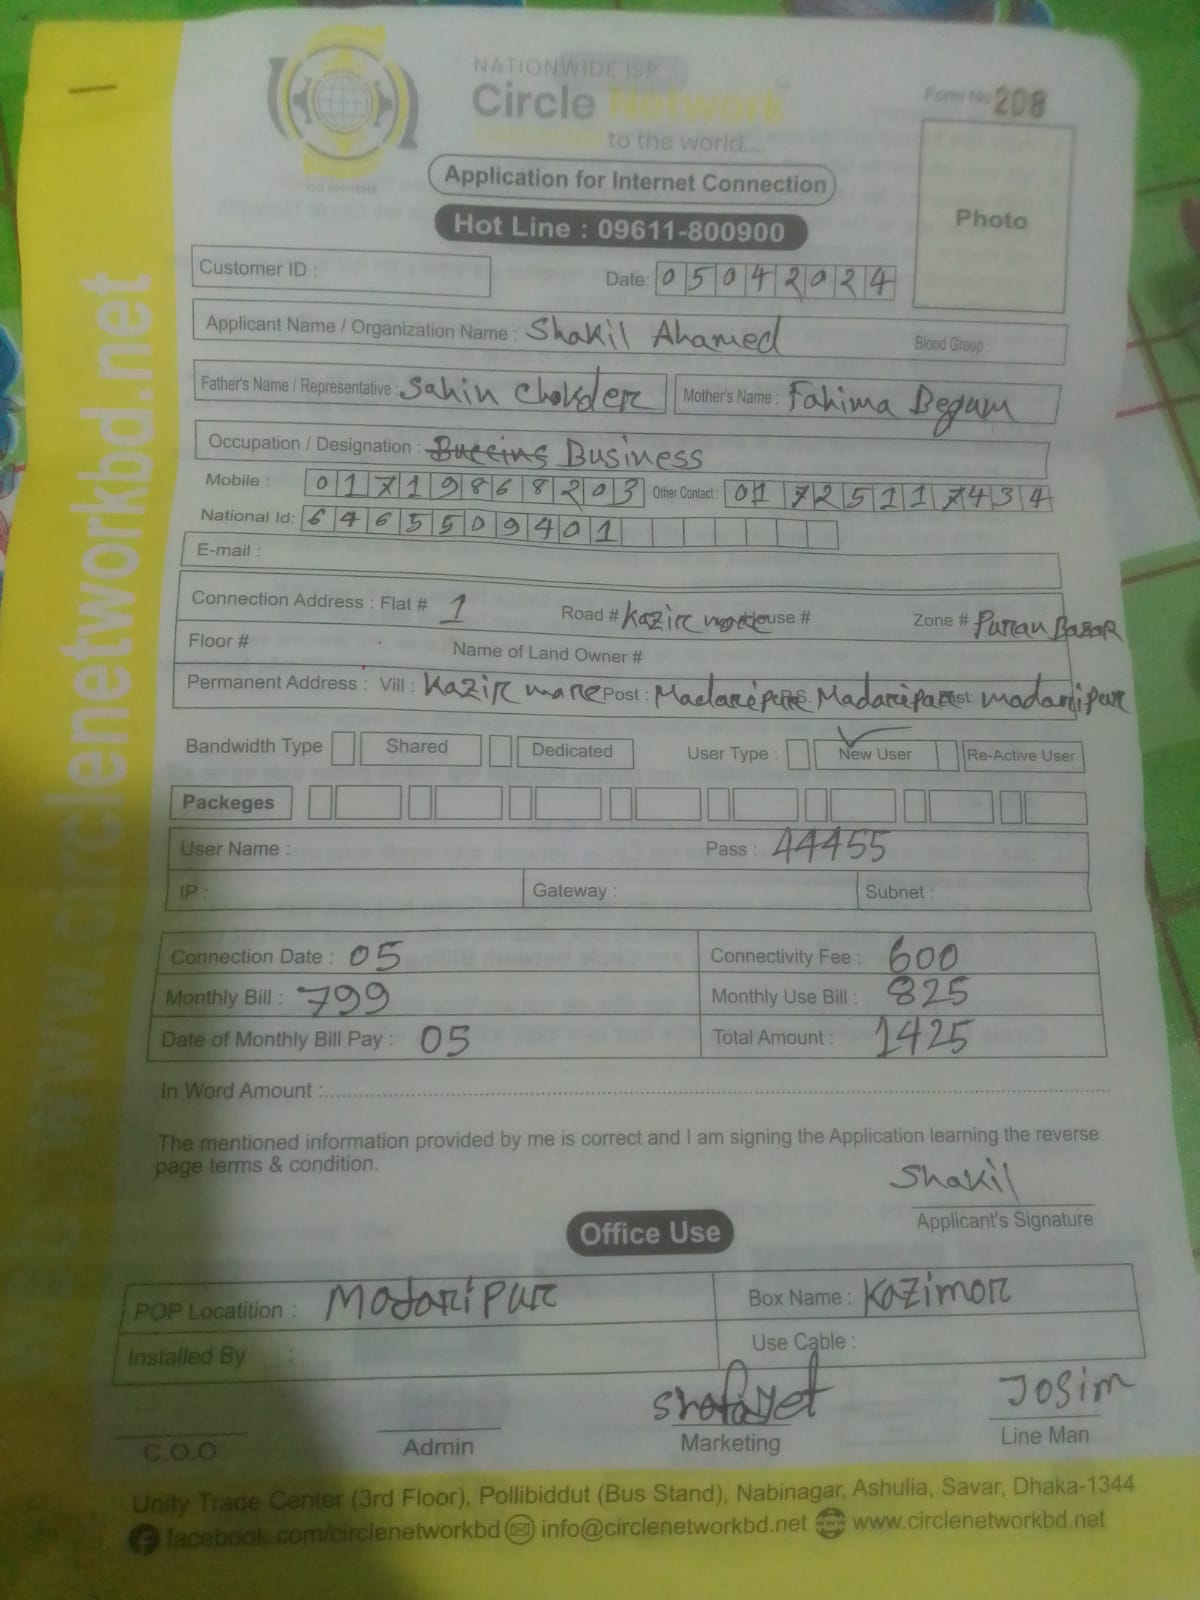 NATIONWIDE ISP
Circle Network
to the world...
Form No 208
Photo
Application for Internet Connection
Hot Line : 09611-800900
Customer ID :
Date: 05042024
Applicant Name / Organization Name : Shakil Ahamed Blood Group :
Father's Name / Representative : Sahin Chokder Mother's Name : Fahima Begum
Occupation / Designation : Business
Mobile : 01719868203 Other Contact : 01725117434
National Id: 6465509401
E-mail :
Connection Address : Flat # 1 Road # Kazir House # Zone # Puran Bazar
Floor # Name of Land Owner #
Permanent Address : Vill : Kazir more Post : Madaripur P.S: Madaripur Dist: madaripur
Bandwidth Type Shared Dedicated User Type : New User Re-Active User
Packeges
User Name : Pass : 44455
IP : Gateway : Subnet :
Connection Date : 05 Connectivity Fee : 600
Monthly Bill : 799 Monthly Use Bill : 825
Date of Monthly Bill Pay : 05 Total Amount : 1425
In Word Amount :
The mentioned information provided by me is correct and I am signing the Application learning the reverse
page terms & condition.
Shakil
Applicant's Signature
Office Use
POP Locatition : Madaripur Box Name : Kazimor
Installed By : Use Cable :
Shafayet Josim
C.O.O Admin Marketing Line Man
Unity Trade Center (3rd Floor), Pollibiddut (Bus Stand), Nabinagar, Ashulia, Savar, Dhaka-1344
facebook.com/circlenetworkbd info@circlenetworkbd.net www.circlenetworkbd.net
www.circlenetworkbd.net